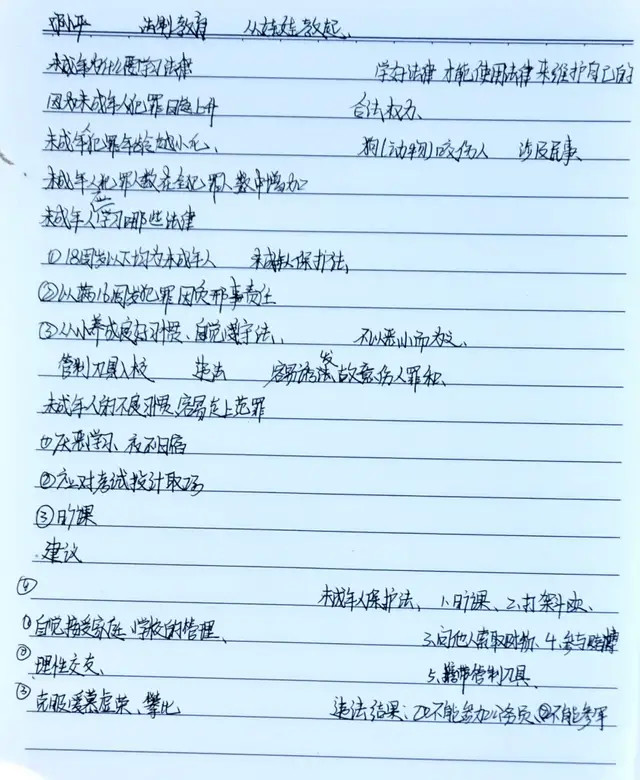 邓小平 法制教育 从娃娃教起、
未成年为什么要学习法律 学好法律 才能使用法律来维护自己的
因为未成年人犯罪日趋上升 合法权力、
未成年人犯罪年龄越小化、 狗(动物)咬伤人 涉及民事、
未成年人犯罪人数在全犯罪人数中增加
未成年人学习哪些法律
①18周岁以下均为未成年人 未成年人保护法,
②以满16周岁犯罪因负刑事责任
③从小养成良好习惯、自觉遵守法、 不以恶小而为之、
管制刀具入校 违法 容易诱发故意伤人罪和、
未成年人的不良习惯,容易走上犯罪
①厌恶学习、夜不归宿
②应对考试投计取巧
③旷课
建议
④ 未成年人保护法、1、旷课、2、打架斗殴、
①自觉接受家庭、学校的管理、 3、向他人索取财物、4、参与赌博
②理性交友、 5、携带管制刀具、
③克服爱慕虚荣、攀比、 违法结果:①不能参加公务员、②不能参军